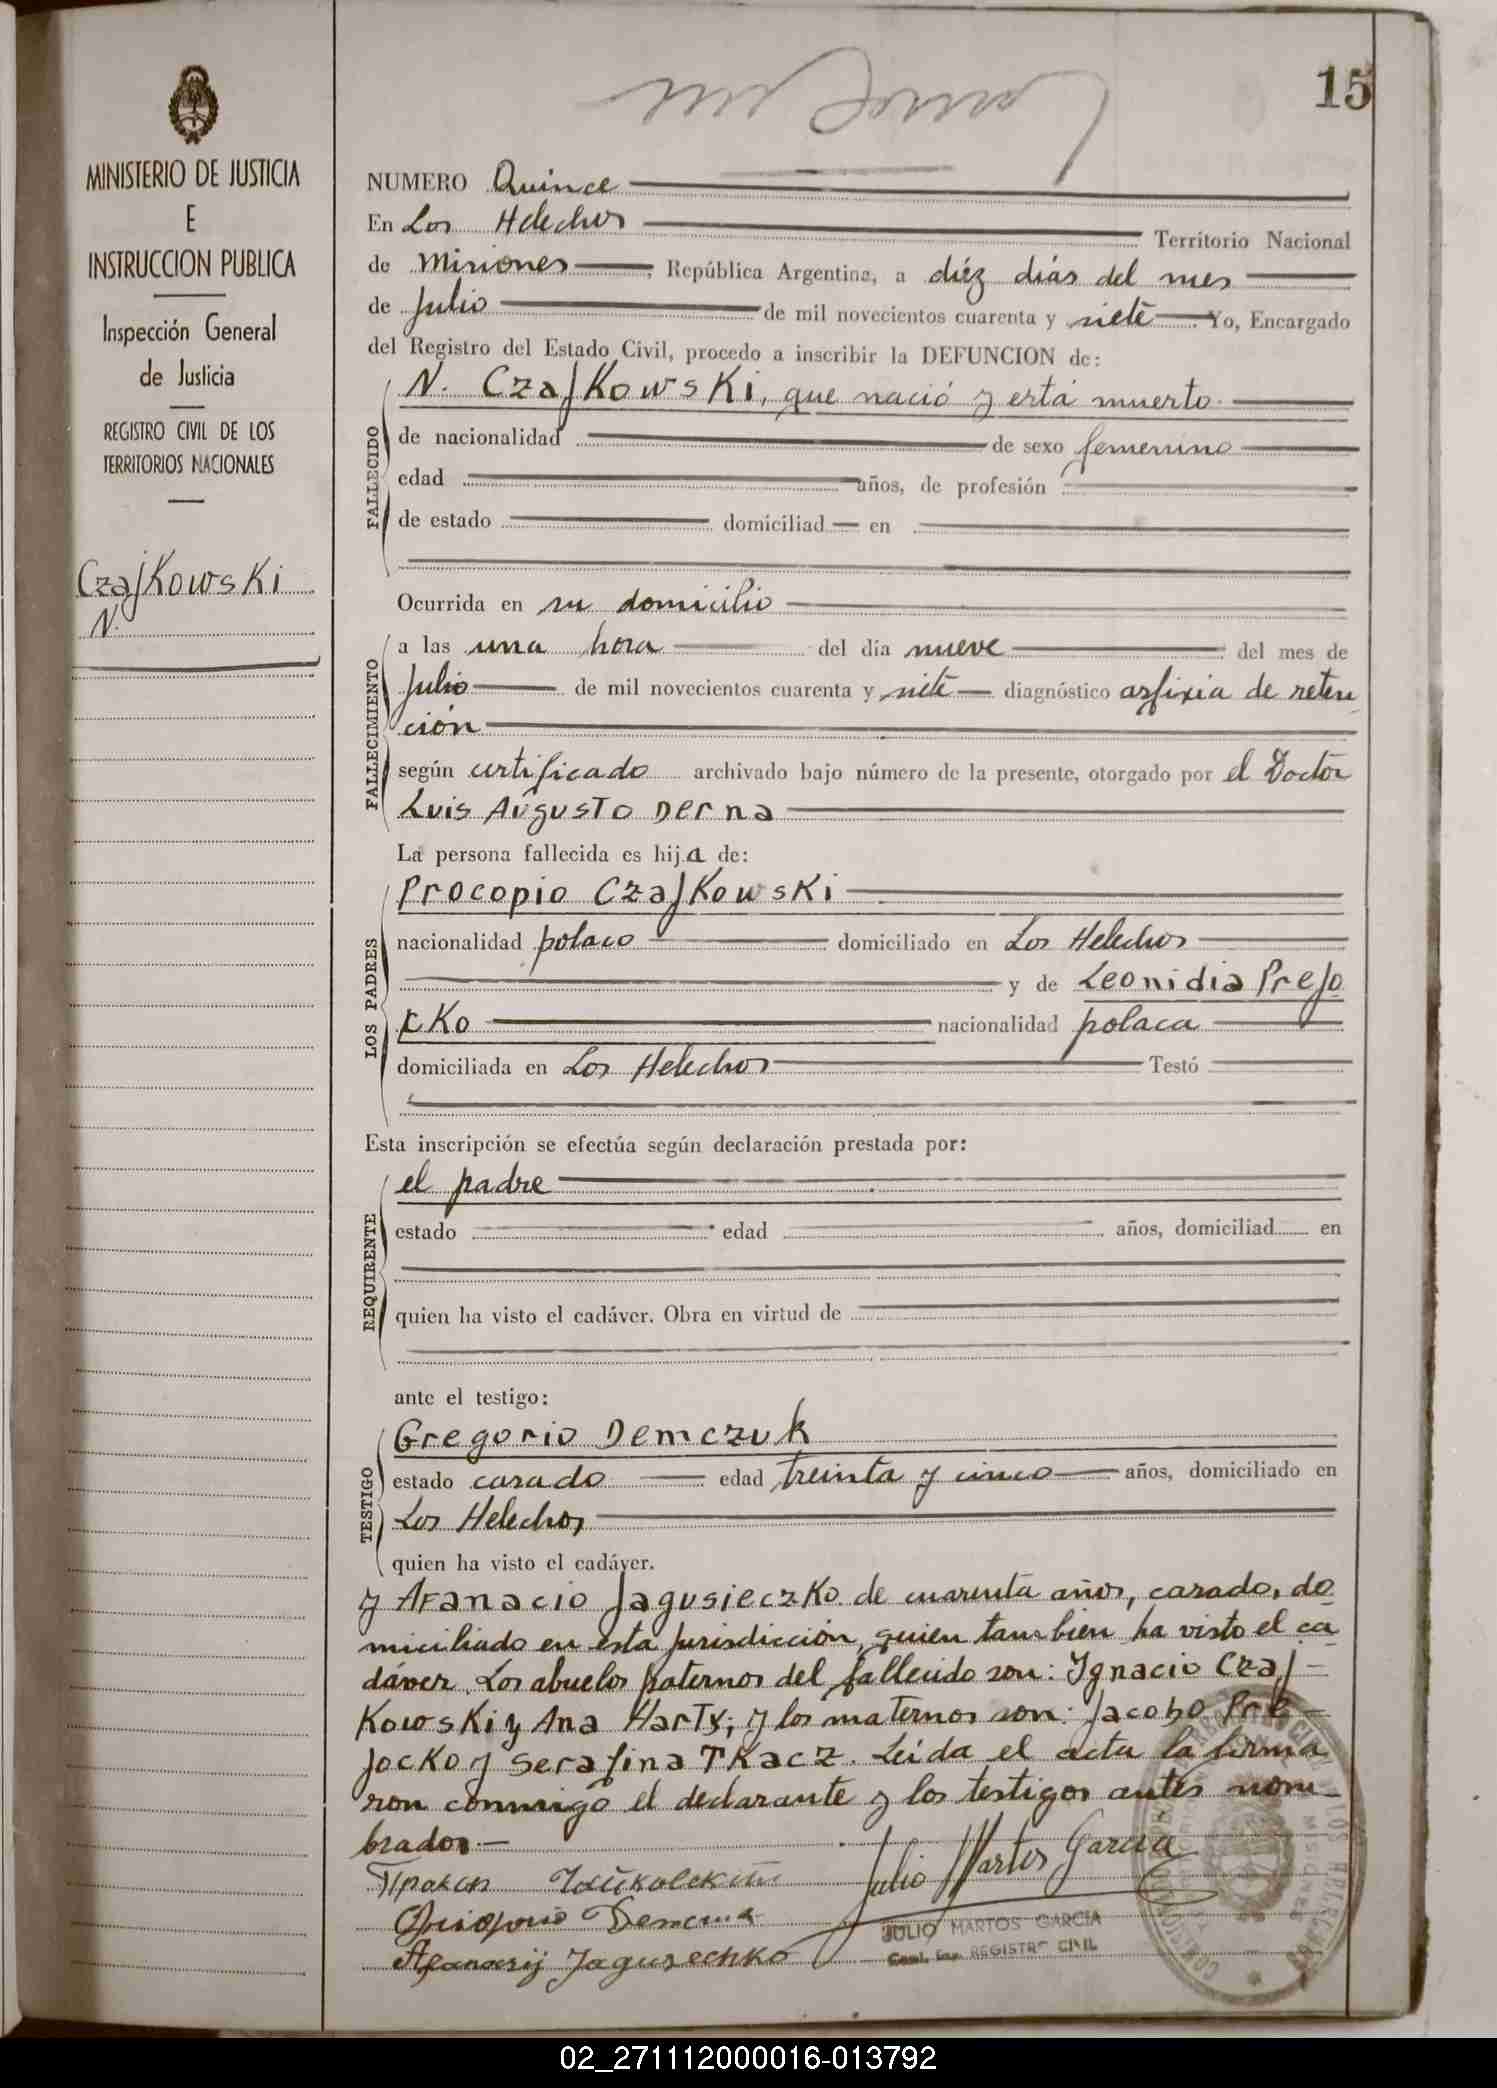 15
MINISTERIO DE JUSTICIA
E
INSTRUCCION PUBLICA
Inspección General
de Justicia
REGISTRO CIVIL DE LOS
TERRITORIOS NACIONALES
CzaJKowsKi
N.
NUMERO Quince
En Los Helechos Territorio Nacional
de Misiones, República Argentina, a diéz dias del mes
de Julio de mil novecientos cuarenta y siete Yo, Encargado
del Registro del Estado Civil, procedo a inscribir la DEFUNCION de:
FALLECIDO
N. CzaJKowsKi, que nació y está muerto
de nacionalidad de sexo femenino
edad años, de profesión
de estado domiciliad en
Ocurrida en su domicilio
FALLECIMIENTO
a las una hora del día nueve del mes de
Julio de mil novecientos cuarenta y siete diagnóstico asfixia de reten
ción
según certificado archivado bajo número de la presente, otorgado por el Doctor
Luis Augusto Derna
La persona fallecida es hija de:
LOS PADRES
Procopio CzaJKowsKi
nacionalidad polaco domiciliado en Los Helechos
y de Leonidia PreJo
cKo nacionalidad polaca
domiciliada en Los Helechos Testó
Esta inscripción se efectúa según declaración prestada por:
REQUIRENTE
el padre
estado edad años, domiciliad en
quien ha visto el cadáver. Obra en virtud de
ante el testigo:
TESTIGO
Gregorio Demczuk
estado casado edad treinta y cinco años, domiciliado en
Los Helechos
quien ha visto el cadáver.
y Afanacio JagusieczKo de cuarenta años, casado, do
miciliado en esta jurisdicción, quien tambien ha visto el ca
dáver. Los abuelos paternos del fallecido son: Ignacio CzaJ-
KowsKi y Ana Harty; y los maternos son: Jacobo Pre-
JocKo y Serafina TKacz. Leída el acta la firma
ron conmigo el declarante y los testigos antes nom-
brados.-
Julio Martos Garcia
Afanasij Jagusechko
JULIO MARTOS GARCIA
REGISTRO CIVIL
02_271112000016-013792